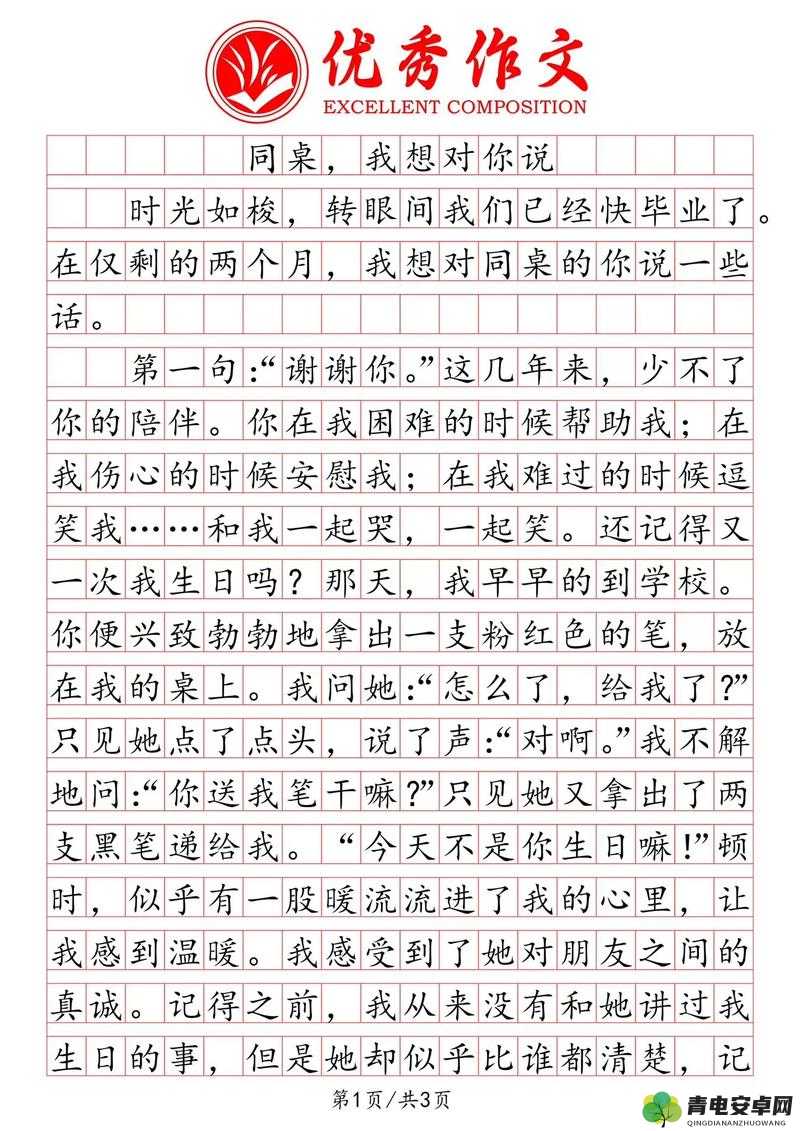 优秀作文
EXCELLENT COMPOSITION
同桌，我想对你说
时光如梭，转眼间我们已经快毕业了。
在仅剩的两个月，我想对同桌的你说一些
话。
第一句：“谢谢你。”这几年来，少不了
你的陪伴。你在我困难的时候帮助我；在
我伤心的时候安慰我；在我难过的时候逗
笑我……和我一起哭，一起笑。还记得又
一次我生日吗？那天，我早早的到学校。
你便兴致勃勃地拿出一支粉红色的笔，放
在我的桌上。我问她：“怎么了，给我了？”
只见她点了点头，说了声：“对啊。”我不解
地问：“你送我笔干嘛？”只见她又拿出了两
支黑笔递给我。“今天不是你生日嘛！”顿
时，似乎有一股暖流流进了我的心里，让
我感到温暖。我感受到了她对朋友之间的
真诚。记得之前，我从来没有和她讲过我
生日的事，但是她却似乎比谁都清楚，记
第1页/共3页
青电安卓网
QINGDIANANZHUOWANG